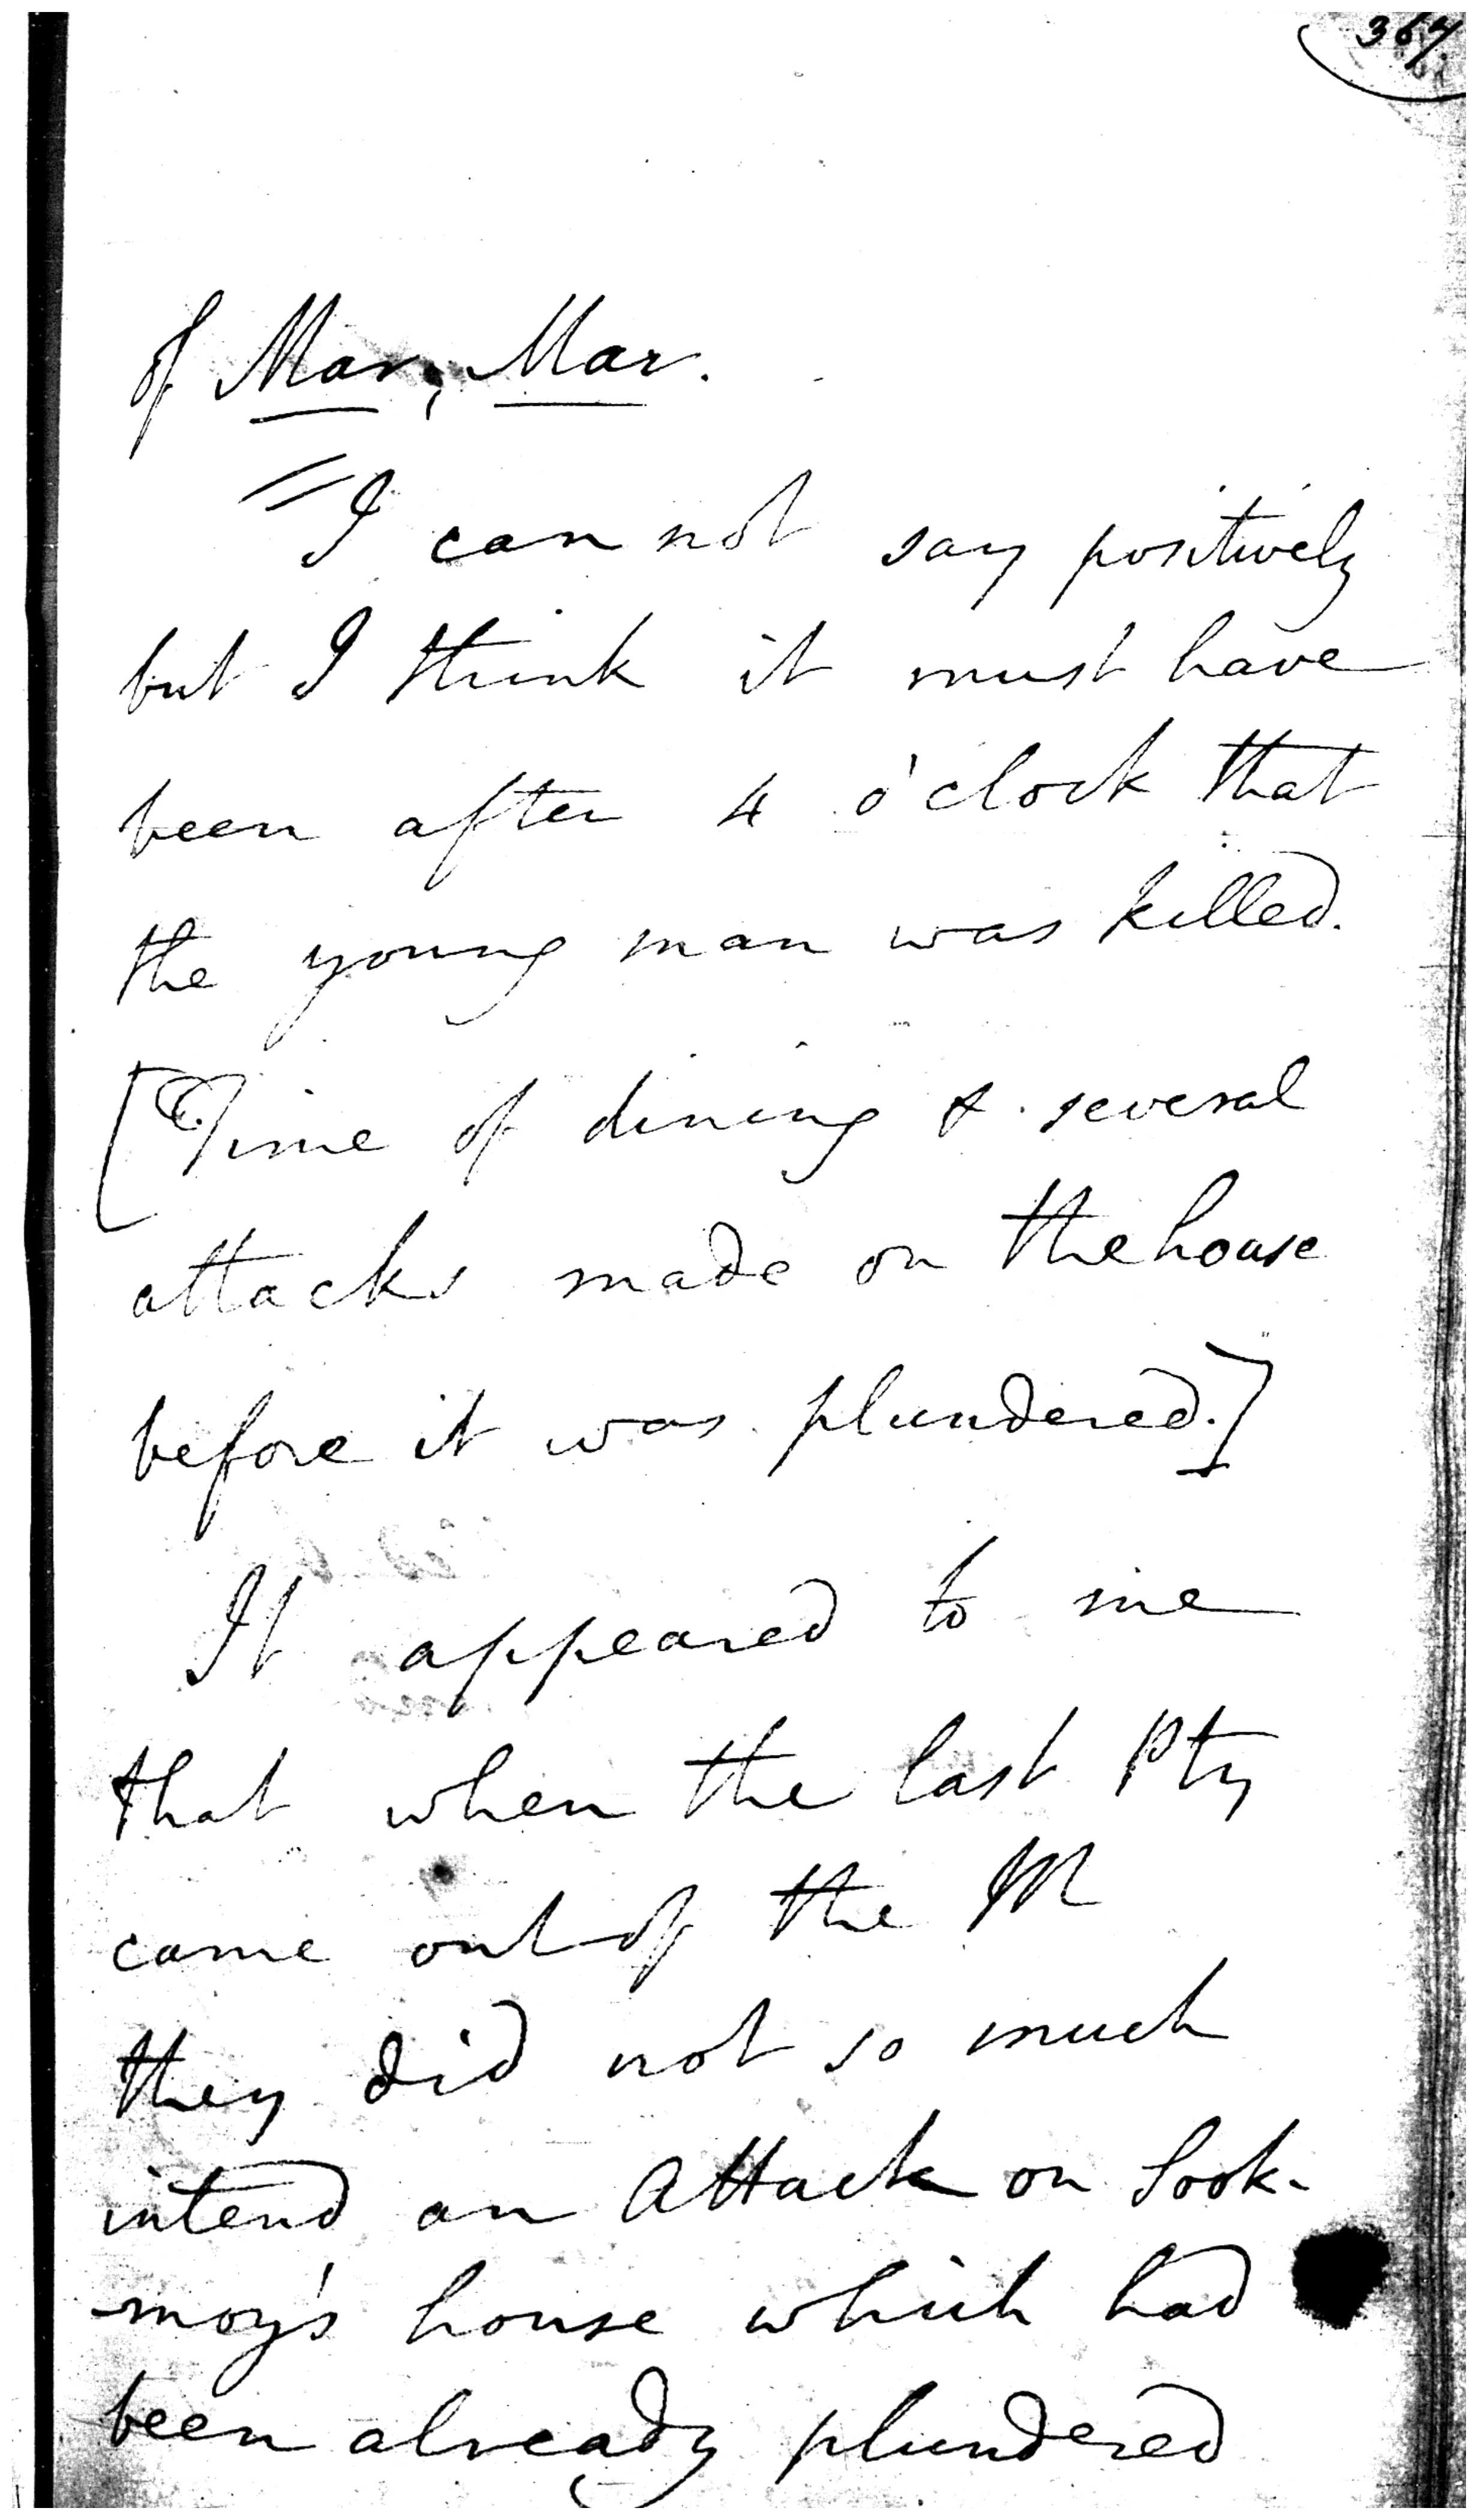 367.
of Mar, Mar.
I can not say positively
but I think it must have
been after 4 o'clock that
the young man was killed.
[Time of dining & several
attacks made on the house
before it was plundered.]
It appeared to me
that when the last Pty
came out of the M
they did not so much
intend an Attack on Look-
moy's house which had
been already plundered